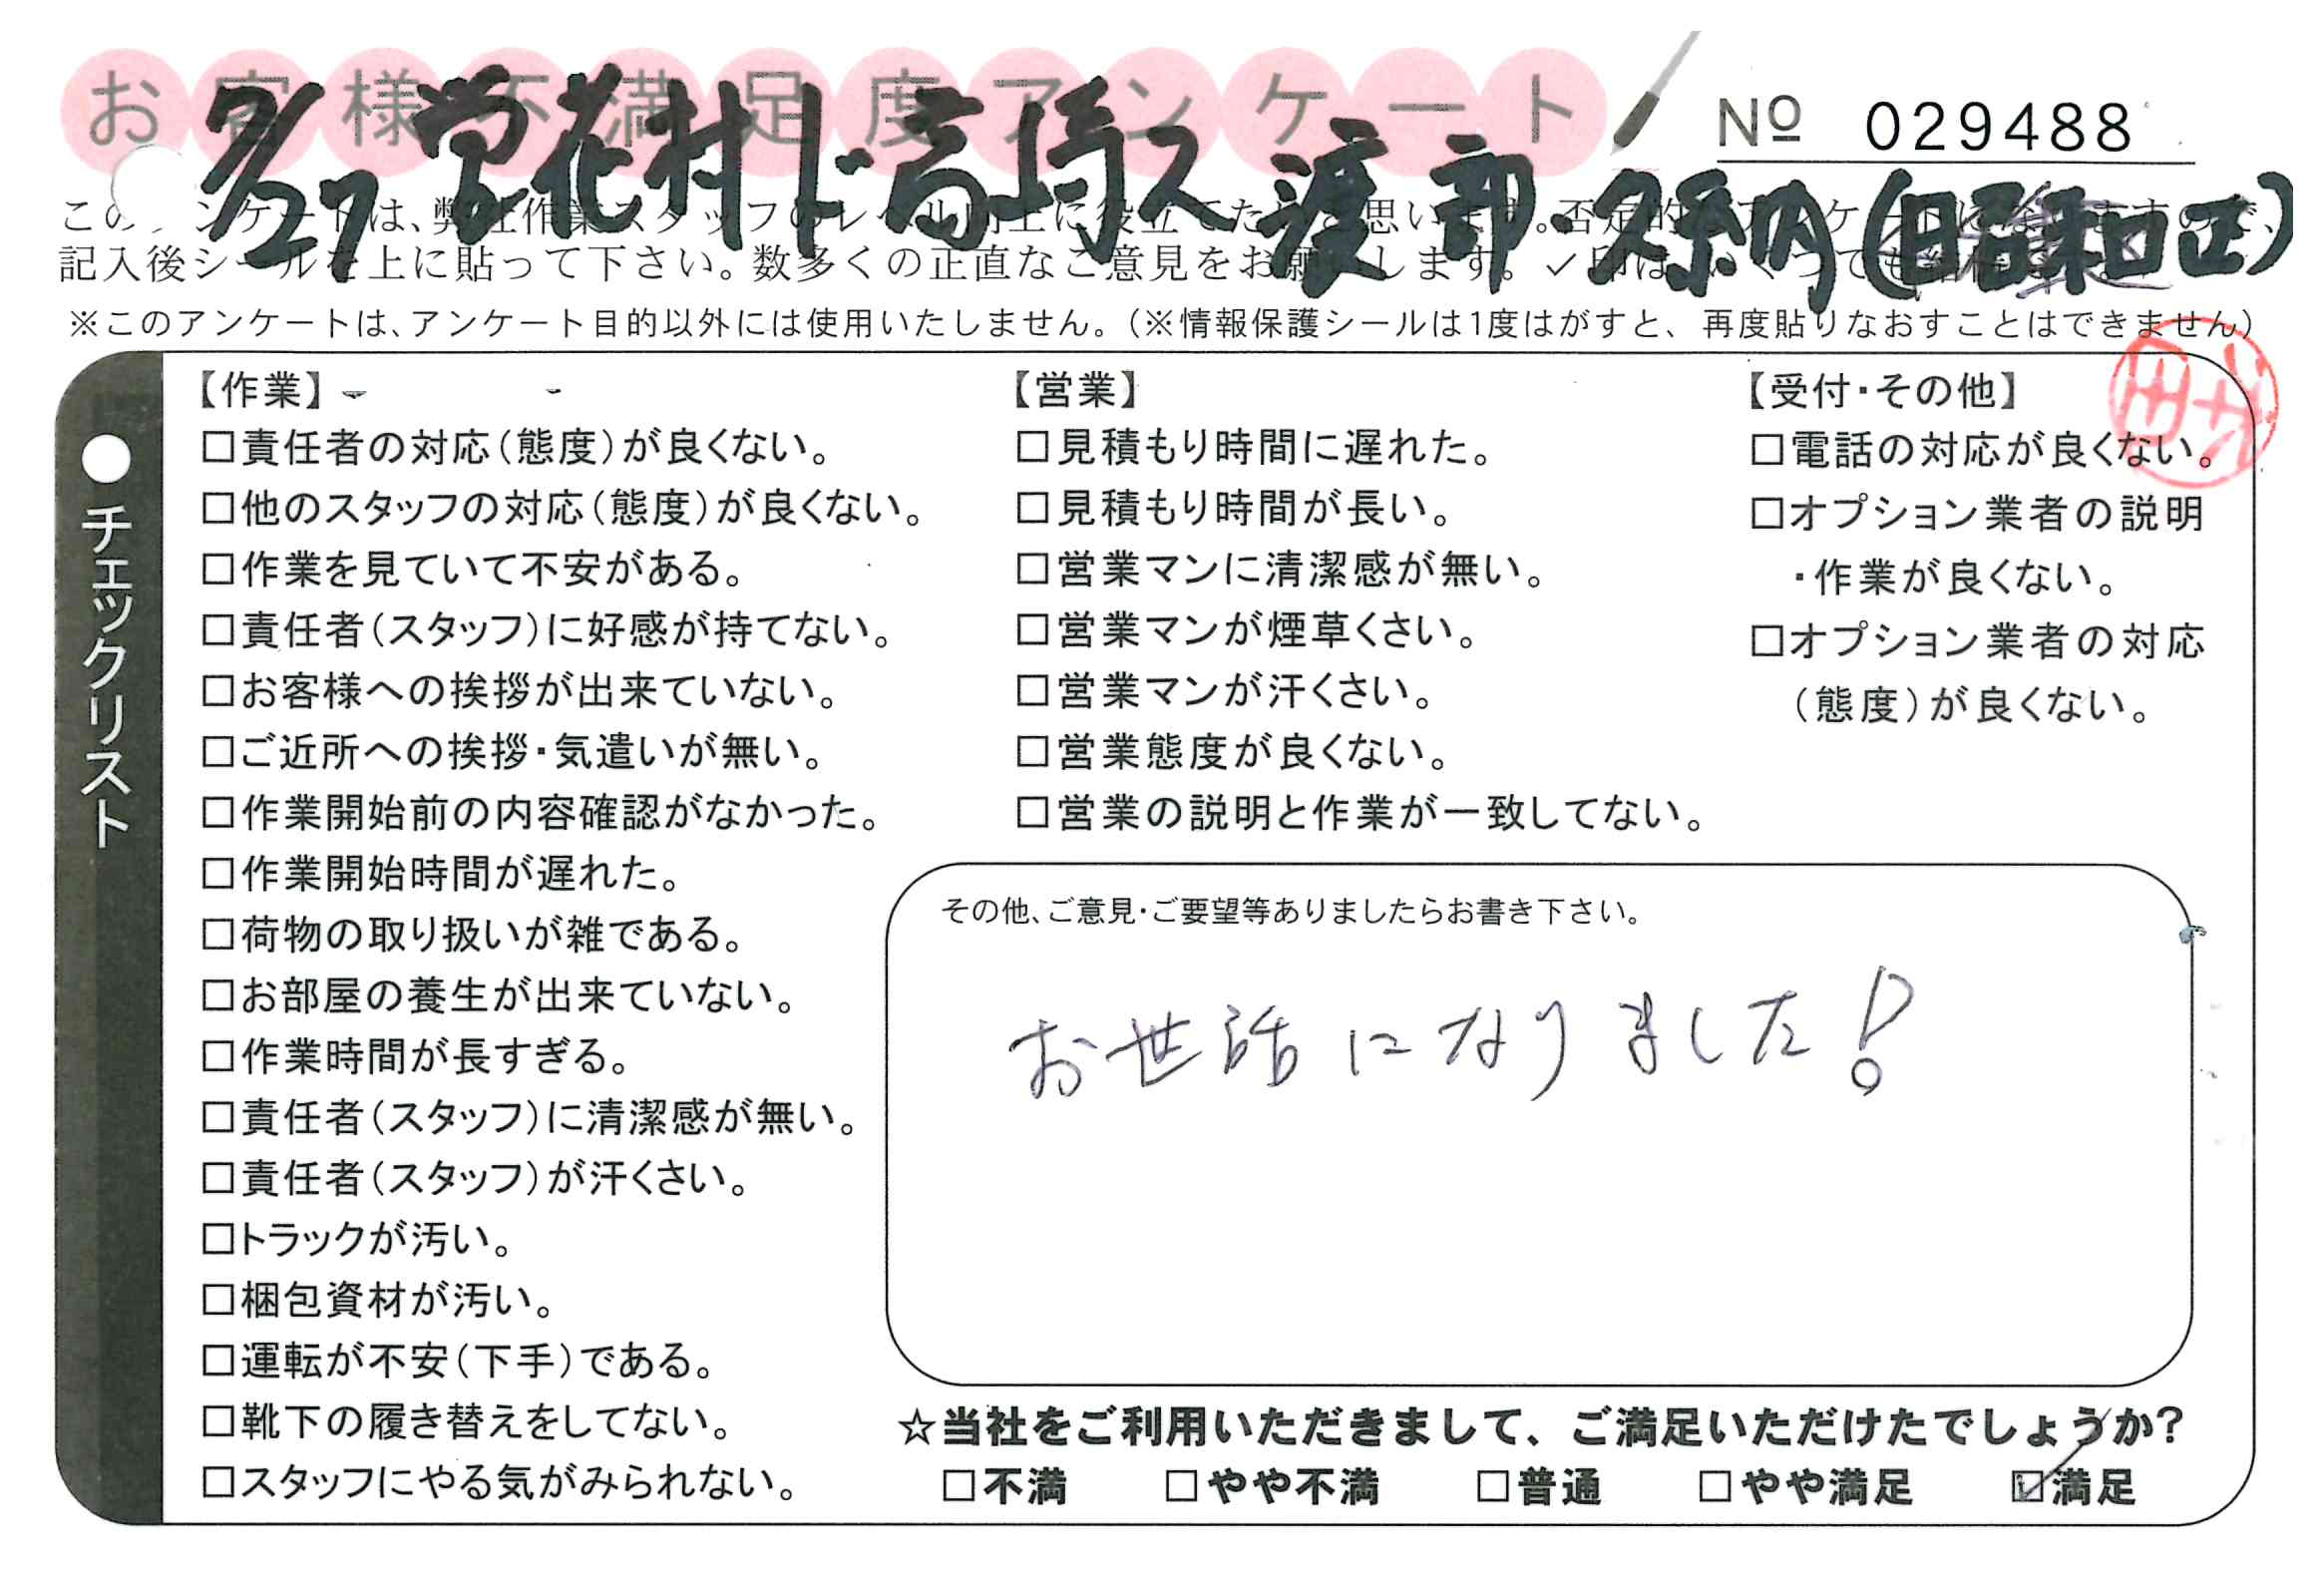 お客様不満足度アンケート
№ 029488
7/27 学 花村 ド 高 渡部・久納(旧昭和区)
記入後シールを上に貼って下さい。数多くの正直なご意見をお願いします。✓印は
※このアンケートは、アンケート目的以外には使用いたしません。(※情報保護シールは1度はがすと、再度貼りなおすことはできません)
●チェックリスト
【作業】
□責任者の対応(態度)が良くない。
□他のスタッフの対応(態度)が良くない。
□作業を見ていて不安がある。
□責任者(スタッフ)に好感が持てない。
□お客様への挨拶が出来ていない。
□ご近所への挨拶・気遣いが無い。
□作業開始前の内容確認がなかった。
□作業開始時間が遅れた。
□荷物の取り扱いが雑である。
□お部屋の養生が出来ていない。
□作業時間が長すぎる。
□責任者(スタッフ)に清潔感が無い。
□責任者(スタッフ)が汗くさい。
□トラックが汚い。
□梱包資材が汚い。
□運転が不安(下手)である。
□靴下の履き替えをしてない。
□スタッフにやる気がみられない。
【営業】
□見積もり時間に遅れた。
□見積もり時間が長い。
□営業マンに清潔感が無い。
□営業マンが煙草くさい。
□営業マンが汗くさい。
□営業態度が良くない。
□営業の説明と作業が一致してない。
【受付・その他】
□電話の対応が良くない。
□オプション業者の説明
・作業が良くない。
□オプション業者の対応
(態度)が良くない。
その他、ご意見・ご要望等ありましたらお書き下さい。
お世話になりました!
☆当社をご利用いただきまして、ご満足いただけたでしょうか?
□不満 □やや不満 □普通 □やや満足 ☑満足